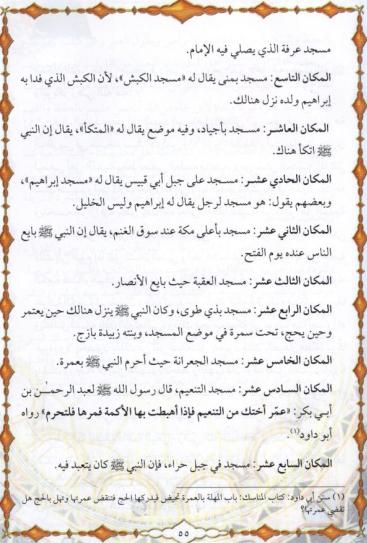 مسجد عرفة الذي يصلي فيه الإمام.
المكان التاسع: مسجد بمنى يقال له «مسجد الكبش»، لأن الكبش الذي فدا به
إبراهيم ولده نزل هنالك.
المكان العاشر: مسجد بأجياد، وفيه موضع يقال له «المتكأ»، يقال إن النبي
ﷺ اتكأ هناك.
المكان الحادي عشر: مسجد على جبل أبي قبيس يقال له «مسجد إبراهيم»،
وبعضهم يقول: هو مسجد لرجل يقال له إبراهيم وليس الخليل.
المكان الثاني عشر: مسجد بأعلى مكة عند سوق الغنم، يقال إن النبي ﷺ بايع
الناس عنده يوم الفتح.
المكان الثالث عشر: مسجد العقبة حيث بايع الأنصار.
المكان الرابع عشر: مسجد بذي طوى، وكان النبي ﷺ ينزل هنالك حين يعتمر
وحين يحج، تحت سمرة في موضع المسجد، وبنته زبيدة بازج.
المكان الخامس عشر: مسجد الجعرانة حيث أحرم النبي ﷺ بعمرة.
المكان السادس عشر: مسجد التنعيم، قال رسول الله ﷺ لعبد الرحمٰن بن
أبي بكر: «عمّر أختك من التنعيم فإذا أهبطت بها الأكمة فمرها فلتحرم» رواه
أبو داود(١).
المكان السابع عشر: مسجد في جبل حراء، فإن النبي ﷺ كان يتعبد فيه.
(١) سنن أبي داود: كتاب المناسك: باب المهلة بالعمرة تحيض فيدركها الحج فتنقض عمرتها وتهل بالحج هل
تقضي عمرتها؟
٥٥